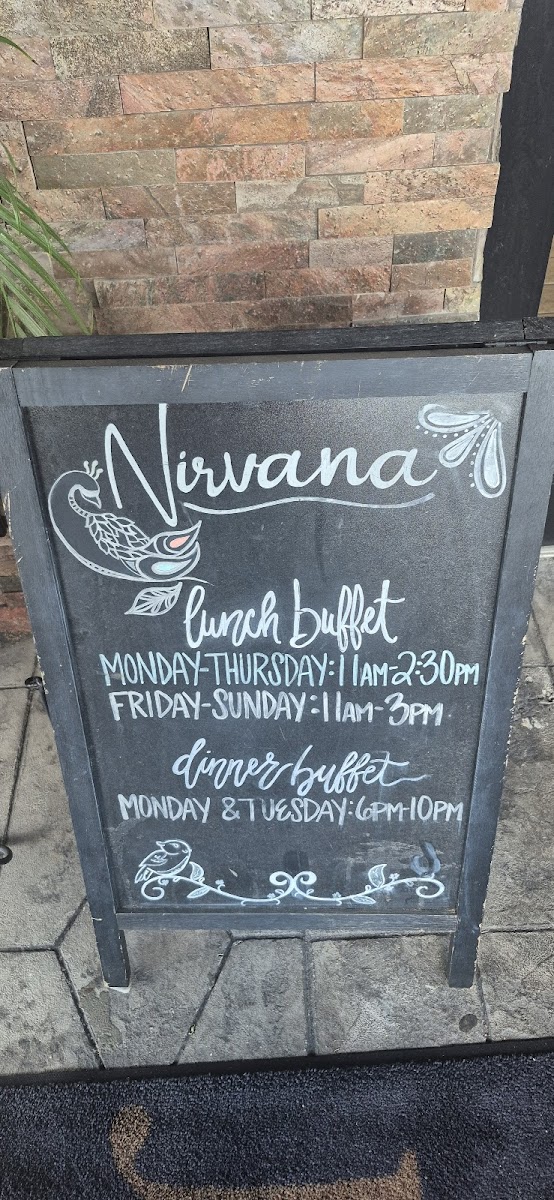 Nirvana
lunch buffet
MONDAY-THURSDAY:11AM-2:30PM
FRIDAY-SUNDAY:11AM-3PM
dinner buffet
MONDAY & TUESDAY:6PM-10PM